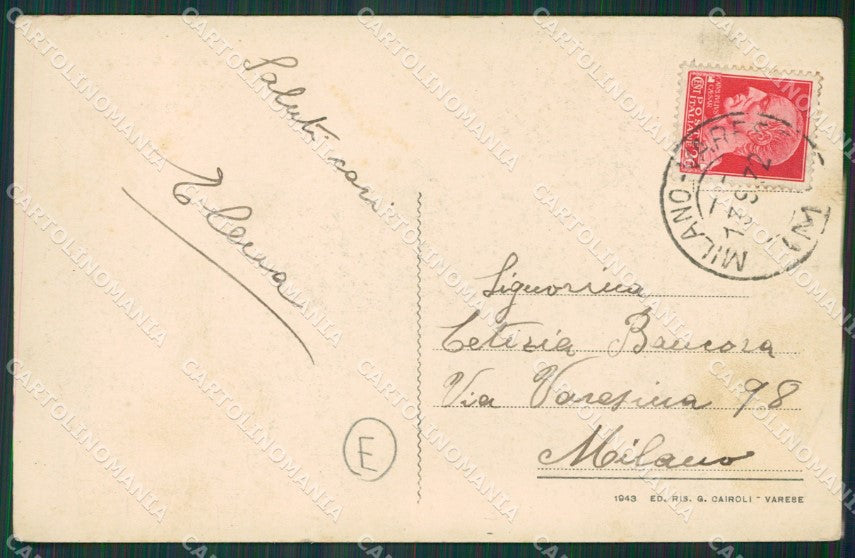 Saluti cari
Elena
Signorina
Letizia Bancora
Via Varesina 98
Milano
1943 ED. RIS. G. CAIROLI - VARESE
E
POSTE
ITALIANE
MILANO - VARESE
CARTOLINOMANIA